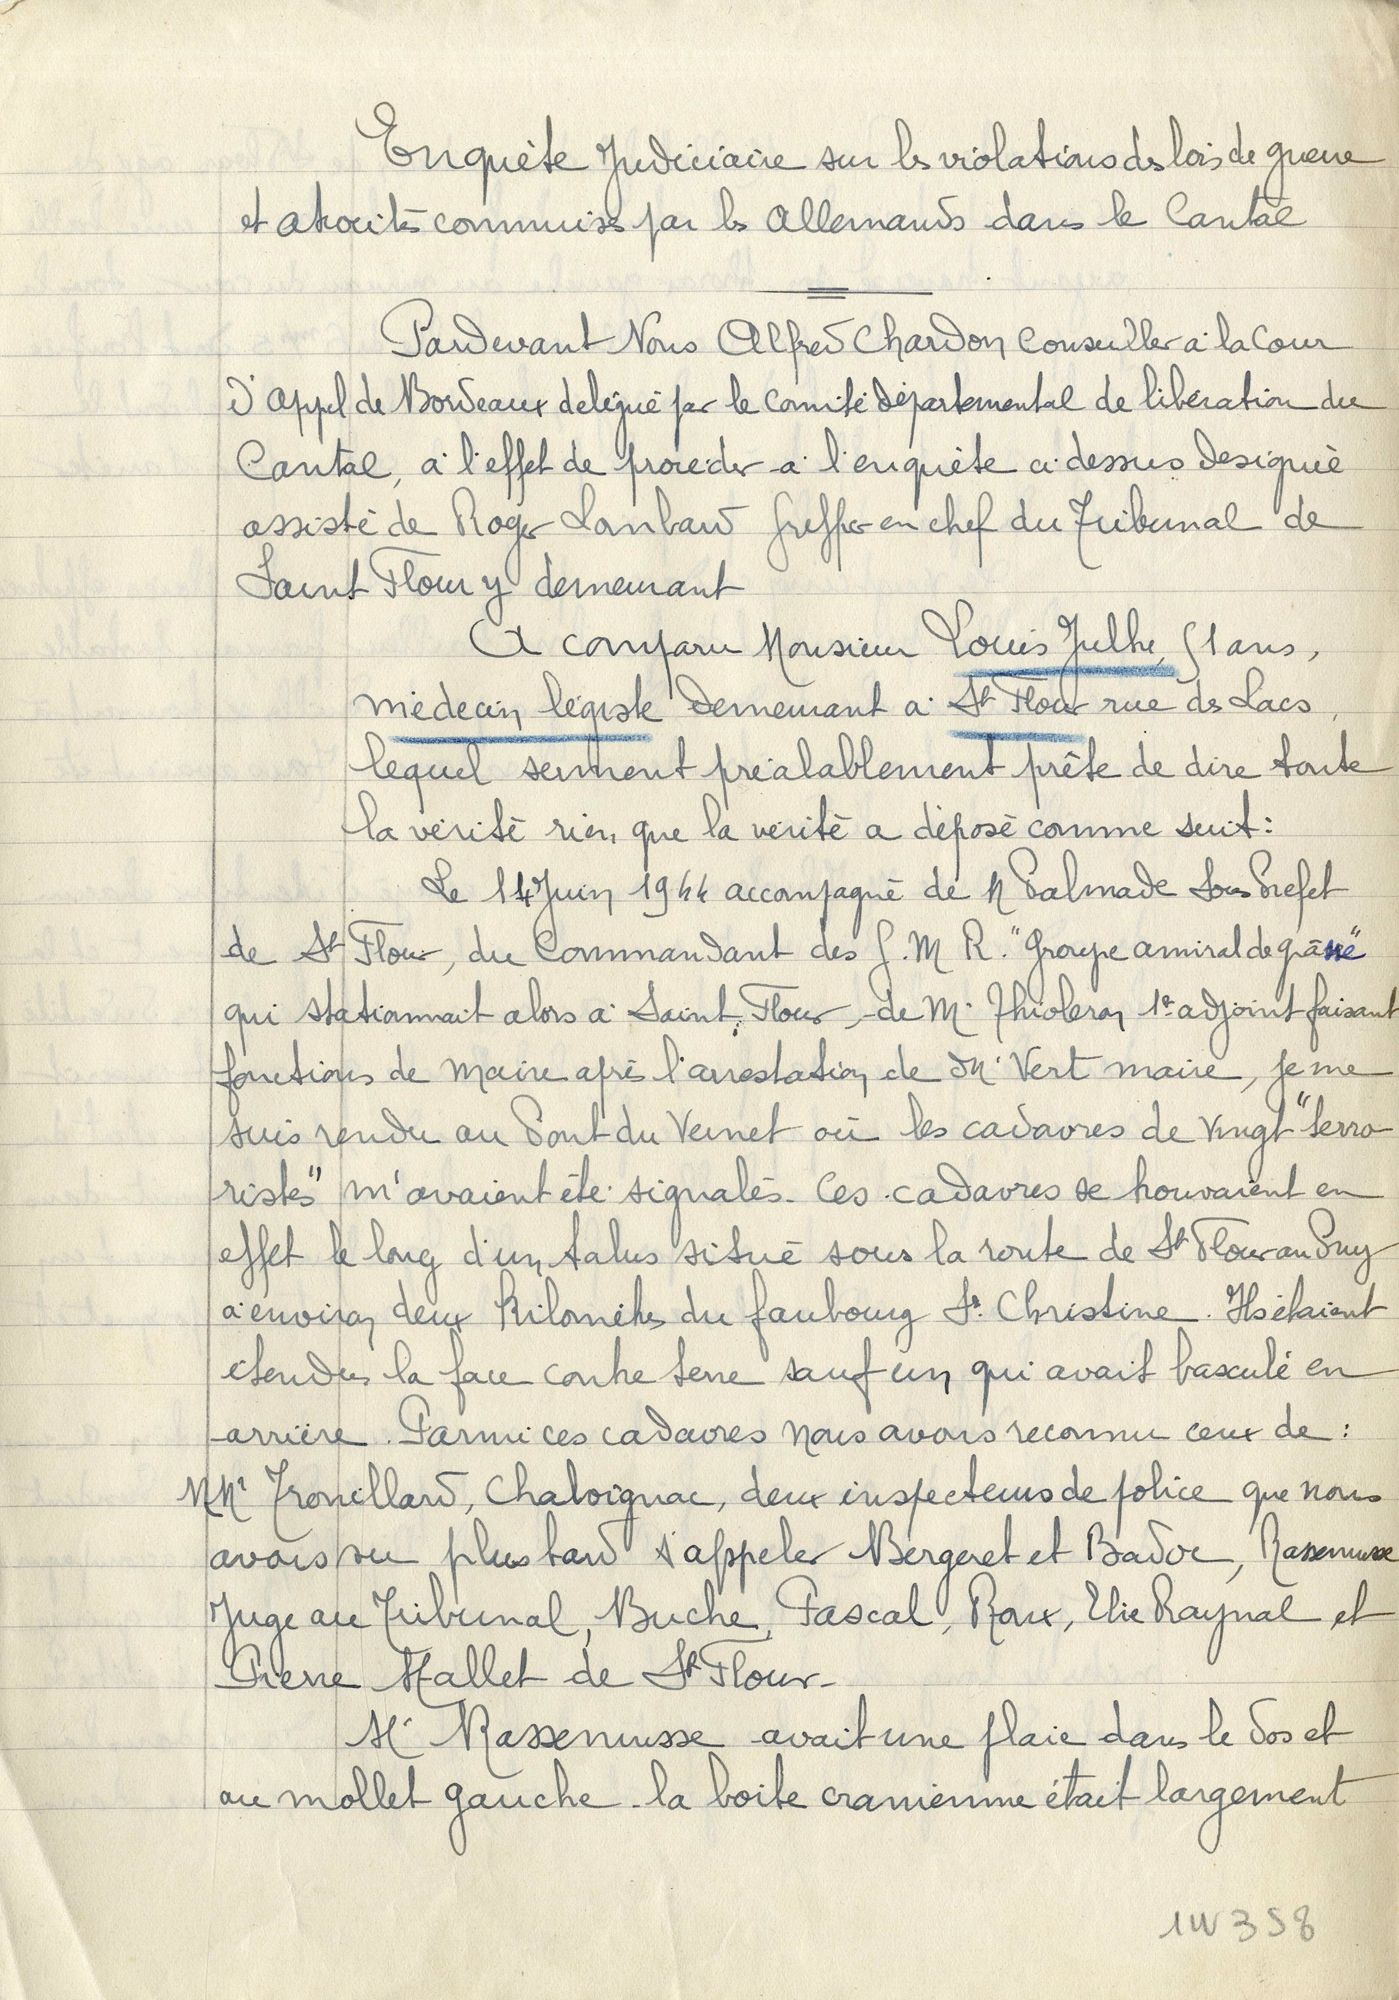 Enquête Judiciaire sur les violations des lois de guerre
et atrocités commises par les Allemands dans le Cantal
Pardevant Nous Alfred Chardon Conseiller à la Cour
d'Appel de Bordeaux délégué par le Comité départemental de libération du
Cantal, à l'effet de procéder à l'enquête ci-dessus désignée
assisté de Roger Lombard Greffier en chef du Tribunal de
Saint Flour y demeurant
A comparu Monsieur Louis Julhe, 51 ans,
médecin légiste demeurant à St Flour rue des Lacs,
lequel serment préalablement prêté de dire toute
la vérité rien que la vérité a déposé comme suit:
Le 14 Juin 1944 accompagné de M Palmade Sous Préfet
de St Flour, du Commandant des G. M. R. "Groupe amiral de grasse"
qui stationnait alors à Saint Flour, de M. Thioleron 1er adjoint faisant
fonctions de Maire après l'arrestation de Mr Vert maire, je me
suis rendu au Pont du Vernet où les cadavres de vingt "terro-
ristes" m'avaient été signalés. Ces cadavres se trouvaient en
effet le long d'un talus situé sous la route de St Flour au Puy
à environ deux kilomètres du faubourg Ste Christine. Ils étaient
étendus la face contre terre sauf un qui avait basculé en
arrière. Parmi ces cadavres nous avons reconnu ceux de:
MMrs Trouillard, Chaloignac, deux inspecteurs de police que nous
avons su plus tard s'appeler Bergeret et Badoc, Rassemusse
Juge au Tribunal, Buche, Pascal, Roux, Elie Raynal et
Pierre Mallet de St Flour.
Mr Rassemusse avait une plaie dans le dos et
au mollet gauche. la boite cranienne était largement
1W358